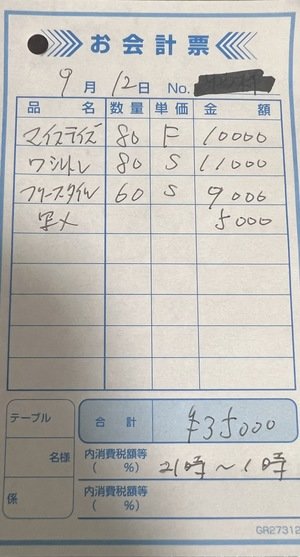 お会計票
9月 12日 No.
品名 数量 単価 金額
マイステイズ 80 F 10000
ワシントン 80 S 11000
フリースタイル 60 S 9000
写メ 5000
テーブル 合計 ¥35000
名様 内消費税額等 ( %) 21時~1時
係 内消費税額等 ( %)
GR27312